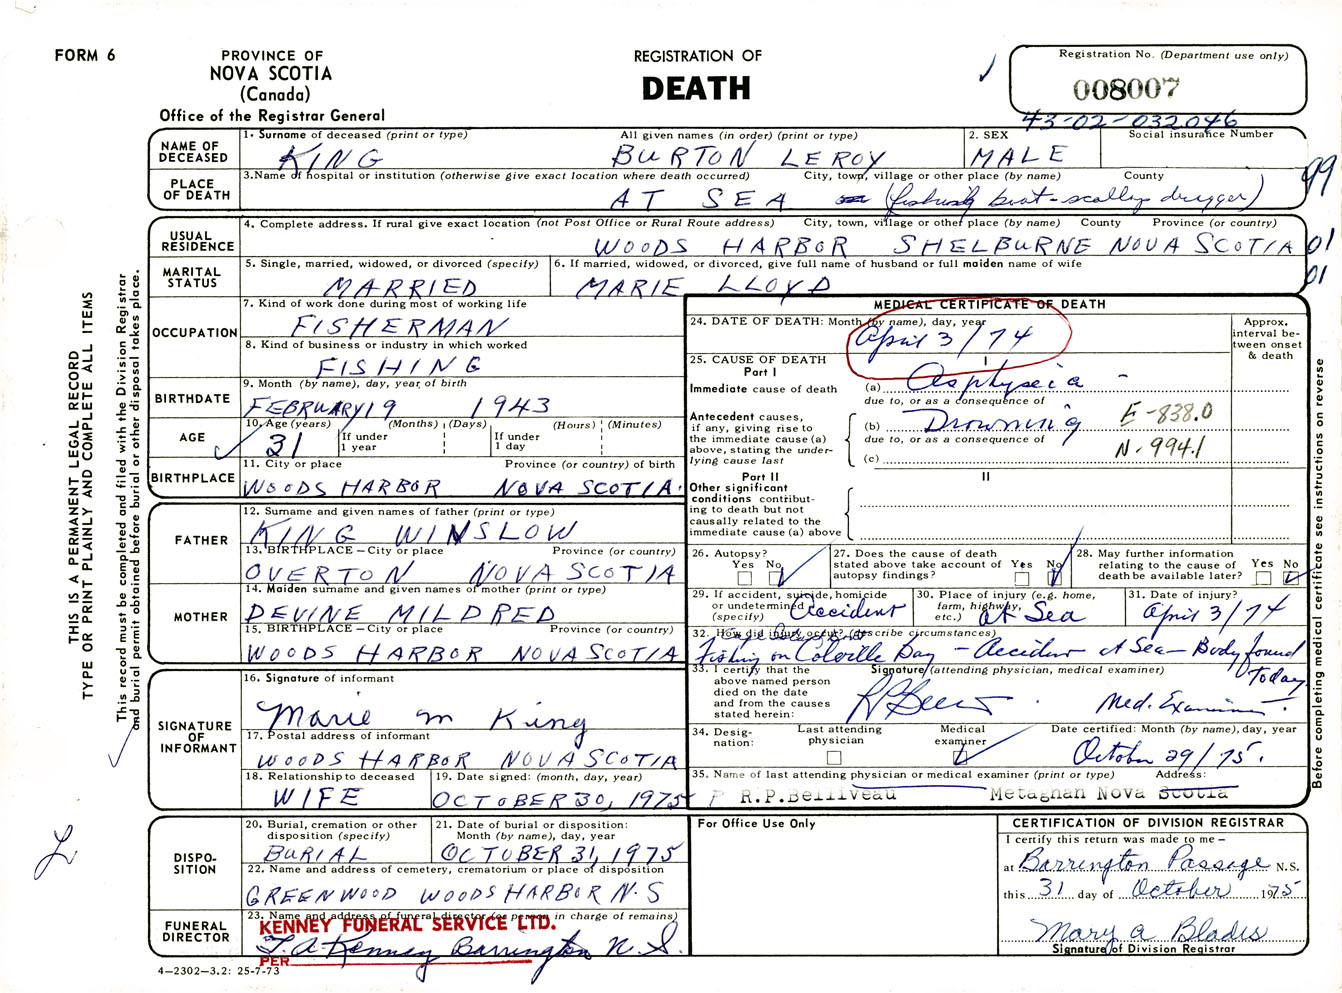 FORM 6
PROVINCE OF
NOVA SCOTIA
(Canada)
Office of the Registrar General
REGISTRATION OF
DEATH
Registration No. (Department use only)
008007
43-02-032046
NAME OF DECEASED
1. Surname of deceased (print or type) All given names (in order) (print or type) 2. SEX Social insurance Number
KING BURTON LEROY MALE
PLACE OF DEATH
3. Name of hospital or institution (otherwise give exact location where death occurred) City, town, village or other place (by name) County
AT SEA (fishing boat - scallop dragger)
99
USUAL RESIDENCE
4. Complete address. If rural give exact location (not Post Office or Rural Route address) City, town, village or other place (by name) County Province (or country)
WOODS HARBOR SHELBURNE NOVA SCOTIA
01
01
MARITAL STATUS
5. Single, married, widowed, or divorced (specify) 6. If married, widowed, or divorced, give full name of husband or full maiden name of wife
MARRIED MARIE LLOYD
OCCUPATION
7. Kind of work done during most of working life
FISHERMAN
8. Kind of business or industry in which worked
FISHING
BIRTHDATE
9. Month (by name), day, year, of birth
FEBRUARY 19 1943
AGE
10. Age (years) (Months) (Days) (Hours) (Minutes)
31 If under 1 year If under 1 day
BIRTHPLACE
11. City or place Province (or country) of birth
WOODS HARBOR NOVA SCOTIA.
FATHER
12. Surname and given names of father (print or type)
KING WINSLOW
13. BIRTHPLACE – City or place Province (or country)
OVERTON NOVA SCOTIA
MOTHER
14. Maiden surname and given names of mother (print or type)
DEVINE MILDRED
15. BIRTHPLACE – City or place Province (or country)
WOODS HARBOR NOVA SCOTIA
SIGNATURE OF INFORMANT
16. Signature of informant
Marie M King
17. Postal address of informant
WOODS HARBOR NOVA SCOTIA
18. Relationship to deceased 19. Date signed: (month, day, year)
WIFE OCTOBER 30, 1975
DISPO-
SITION
20. Burial, cremation or other disposition (specify) 21. Date of burial or disposition: Month (by name), day, year
BURIAL OCTOBER 31, 1975
22. Name and address of cemetery, crematorium or place of disposition
GREENWOOD WOODS HARBOR N.S
FUNERAL DIRECTOR
23. Name and address of funeral director (or person in charge of remains)
KENNEY FUNERAL SERVICE LTD.
PER
T. A. Kenney Barrington N.S.
4–2302–3.2: 25-7-73
MEDICAL CERTIFICATE OF DEATH
24. DATE OF DEATH: Month (by name), day, year
April 3/74
Approx. interval between onset & death
25. CAUSE OF DEATH
Part I
I
Immediate cause of death (a) Asphyxia -
due to, or as a consequence of
Antecedent causes, if any, giving rise to the immediate cause (a) above, stating the underlying cause last
(b) Drowning
E-838.0
due to, or as a consequence of
N-994.1
(c)
Part II
II
Other significant conditions contributing to death but not causally related to the immediate cause (a) above
26. Autopsy? Yes No
27. Does the cause of death stated above take account of autopsy findings? Yes No
28. May further information relating to the cause of death be available later? Yes No
29. If accident, suicide, homicide or undetermined (specify) Accident
30. Place of injury (e.g. home, farm, highway, etc.) At Sea
31. Date of injury?
April 3/74
32. How did injury occur? (describe circumstances)
Fishing on Colville Bay - Accident at Sea - Body found Today.
33. I certify that the above named person died on the date and from the causes stated herein:
Signature (attending physician, medical examiner)
Med. Examiner.
34. Designation: Last attending physician Medical examiner
Date certified: Month (by name), day, year
October 29/75.
35. Name of last attending physician or medical examiner (print or type) Address:
R.P.Belliveau Metaghan Nova Scotia
For Office Use Only
CERTIFICATION OF DIVISION REGISTRAR
I certify this return was made to me –
at Barrington Passage N.S.
this 31 day of October 1975
Mary A Blades
Signature of Division Registrar
THIS IS A PERMANENT LEGAL RECORD
TYPE OR PRINT PLAINLY AND COMPLETE ALL ITEMS
This record must be completed and filed with the Division Registrar
and burial permit obtained before burial or other disposal takes place.
Before completing medical certificate see instructions on reverse